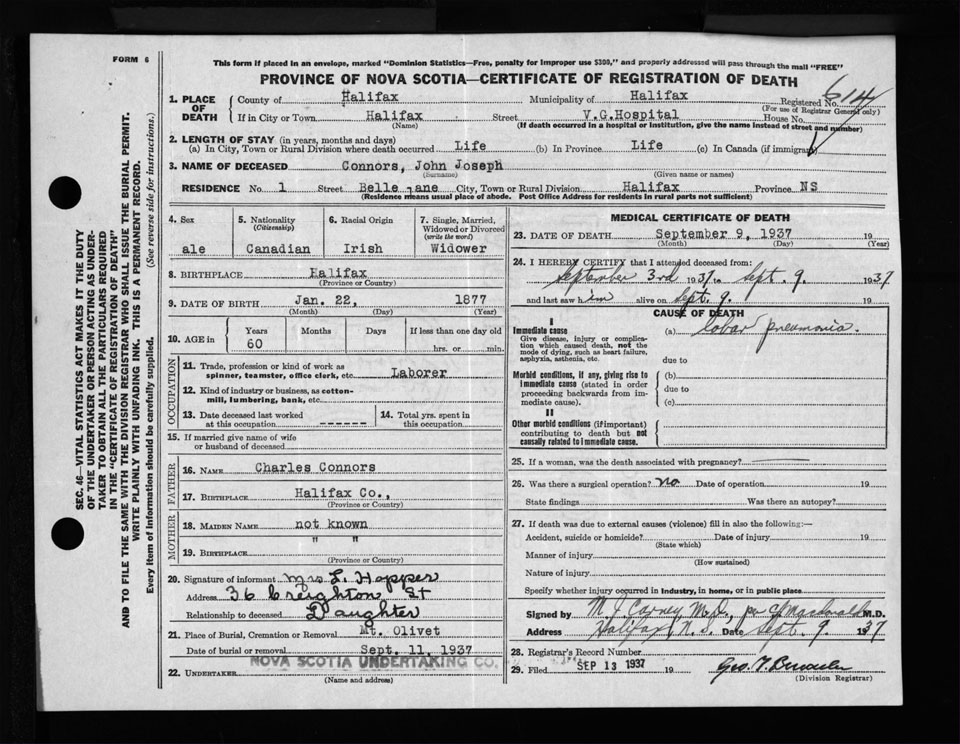 FORM 6
This form if placed in an envelope, marked "Dominion Statistics—Free, penalty for improper use $300," and properly addressed will pass through the mail "FREE"
PROVINCE OF NOVA SCOTIA—CERTIFICATE OF REGISTRATION OF DEATH
SEC. 46—VITAL STATISTICS ACT MAKES IT THE DUTY
OF THE UNDERTAKER OR PERSON ACTING AS UNDER-
TAKER TO OBTAIN ALL THE PARTICULARS REQUIRED
IN THE "CERTIFICATE OF REGISTRATION OF DEATH"
AND TO FILE THE SAME WITH THE DIVISION REGISTRAR WHO SHALL ISSUE THE BURIAL PERMIT.
WRITE PLAINLY WITH UNFADING INK. THIS IS A PERMANENT RECORD.
Every item of information should be carefully supplied. (See reverse side for instructions.)
1. PLACE OF DEATH
County of Halifax Municipality of Halifax Registered No. 614
(For use of Registrar General only)
If in City or Town Halifax Street V.G.Hospital House No.
(Name) (If death occurred in a hospital or institution, give the name instead of street and number)
2. LENGTH OF STAY (in years, months and days)
(a) In City, Town or Rural Division where death occurred Life (b) In Province Life (c) In Canada (if immigrant)
3. NAME OF DECEASED Connors, John Joseph
(Surname) (Given name or names)
RESIDENCE No. 1 Street Belle ane City, Town or Rural Division Halifax Province NS
(Residence means usual place of abode. Post Office Address for residents in rural parts not sufficient)
4. Sex 5. Nationality (Citizenship) 6. Racial Origin 7. Single, Married, Widowed or Divorced (write the word)
ale Canadian Irish Widower
8. BIRTHPLACE Halifax
(Province or Country)
9. DATE OF BIRTH Jan. 22, 1877
(Month) (Day) (Year)
10. AGE in Years Months Days If less than one day old
60 hrs. or min.
OCCUPATION
11. Trade, profession or kind of work as
spinner, teamster, office clerk, etc. Laborer
12. Kind of industry or business, as cotton-
mill, lumbering, bank, etc.
13. Date deceased last worked
at this occupation -------
14. Total yrs. spent in
this occupation
15. If married give name of wife
or husband of deceased
FATHER
16. NAME Charles Connors
17. BIRTHPLACE Halifax Co.,
(Province or Country)
MOTHER
18. MAIDEN NAME not known
19. BIRTHPLACE " "
(Province or Country)
20. Signature of informant Mrs L. Hopper
Address 36 Creighton St
Relationship to deceased Daughter
21. Place of Burial, Cremation or Removal Mt. Olivet
Date of burial or removal Sept. 11, 1937
22. UNDERTAKER NOVA SCOTIA UNDERTAKING CO.
(Name and address)
MEDICAL CERTIFICATE OF DEATH
23. DATE OF DEATH September 9, 1937 19
(Month) (Day) (Year)
24. I HEREBY CERTIFY that I attended deceased from:
September 3rd 1937 to Sept. 9. 1937
and last saw him alive on Sept. 9. 19
CAUSE OF DEATH
I
Immediate cause (a) lobar pneumonia.
Give disease, injury or complica-
tion which caused death, not the
mode of dying, such as heart failure,
asphyxia, asthenia, etc. due to
Morbid conditions, if any, giving rise to (b)
immediate cause (stated in order due to
proceeding backwards from im-
mediate cause). (c)
II
Other morbid conditions (if important)
contributing to death but not
causally related to immediate cause.
25. If a woman, was the death associated with pregnancy?
26. Was there a surgical operation? no. Date of operation 19
State findings Was there an autopsy?
27. If death was due to external causes (violence) fill in also the following:—
Accident, suicide or homicide? Date of injury 19
(State which)
Manner of injury
(How sustained)
Nature of injury
Specify whether injury occurred in Industry, in home, or in public place
Signed by N J Carney M.D., per M.D.
Address Halifax, N.S. Date Sept. 9. 1937
28. Registrar's Record Number
29. Filed SEP 13 1937 19
(Division Registrar)